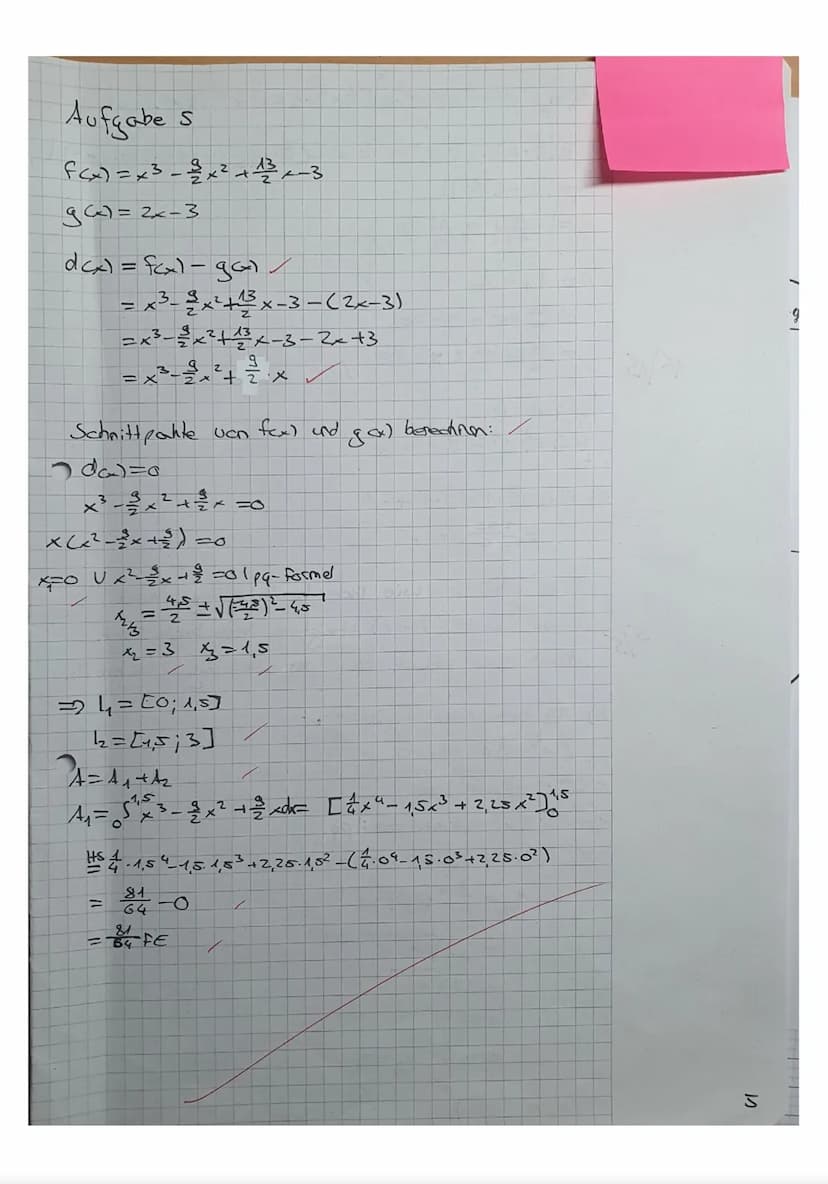 Aufgabe 5
f(x) = x³ - 9/2 x² + 13/2 x - 3
g(x) = 2x - 3
d(x) = f(x) - g(x) ✓
= x³ - 9/2 x² + 13/2 x - 3 - (2x - 3)
= x³ - 9/2 x² + 13/2 x - 3 - 2x + 3
= x³ - 9/2 x² + 9/2 · x ✓
Schnittpunkte von f(x) und g(x) berechnen:
d(x) = 0
x³ - 9/2 x² + 9/2 x = 0
x(x² - 9/2 x + 9/2) = 0
x₁ = 0 ∪ x² - 9/2 x + 9/2 = 0 | pq-Formel
x₂/₃ = 4,5/2 ± √((-4,5/2)² - 4,5)
x₂ = 3 x₃ = 1,5
⇒ I₁ = [0; 1,5]
I₂ = [1,5; 3]
A = A₁ + A₂
A₁ = ₀∫^1,5 x³ - 9/2 x² + 9/2 x dx = [1/4 x⁴ - 1,5x³ + 2,25x²]₀^1,5
HS= 1/4 · 1,5⁴ - 1,5 · 1,5³ + 2,25 · 1,5² - (1/4 · 0⁴ - 1,5 · 0³ + 2,25 · 0²)
= 81/64 - 0
= 81/64 FE
5